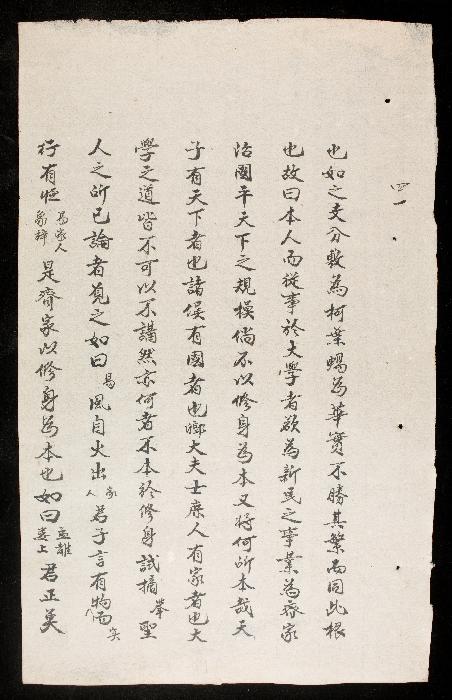 四一
也如之支分敷為柯葉暢為華實不勝其繁而同此根
也故曰本人而從事於大學者欲為新民之事業為齊家
治國平天下之規模倘不以修身為本又將何所本哉天
子有天下者也諸侯有國者也卿大夫士庶人有家者也大
學之道皆不可以不講然亦何者不本於修身試摘舉聖
人之所已論者見之如曰易風自火出家人君子言有物而
行有恒易家人象辭是齊家以修身為本也如曰孟離婁上君正莫